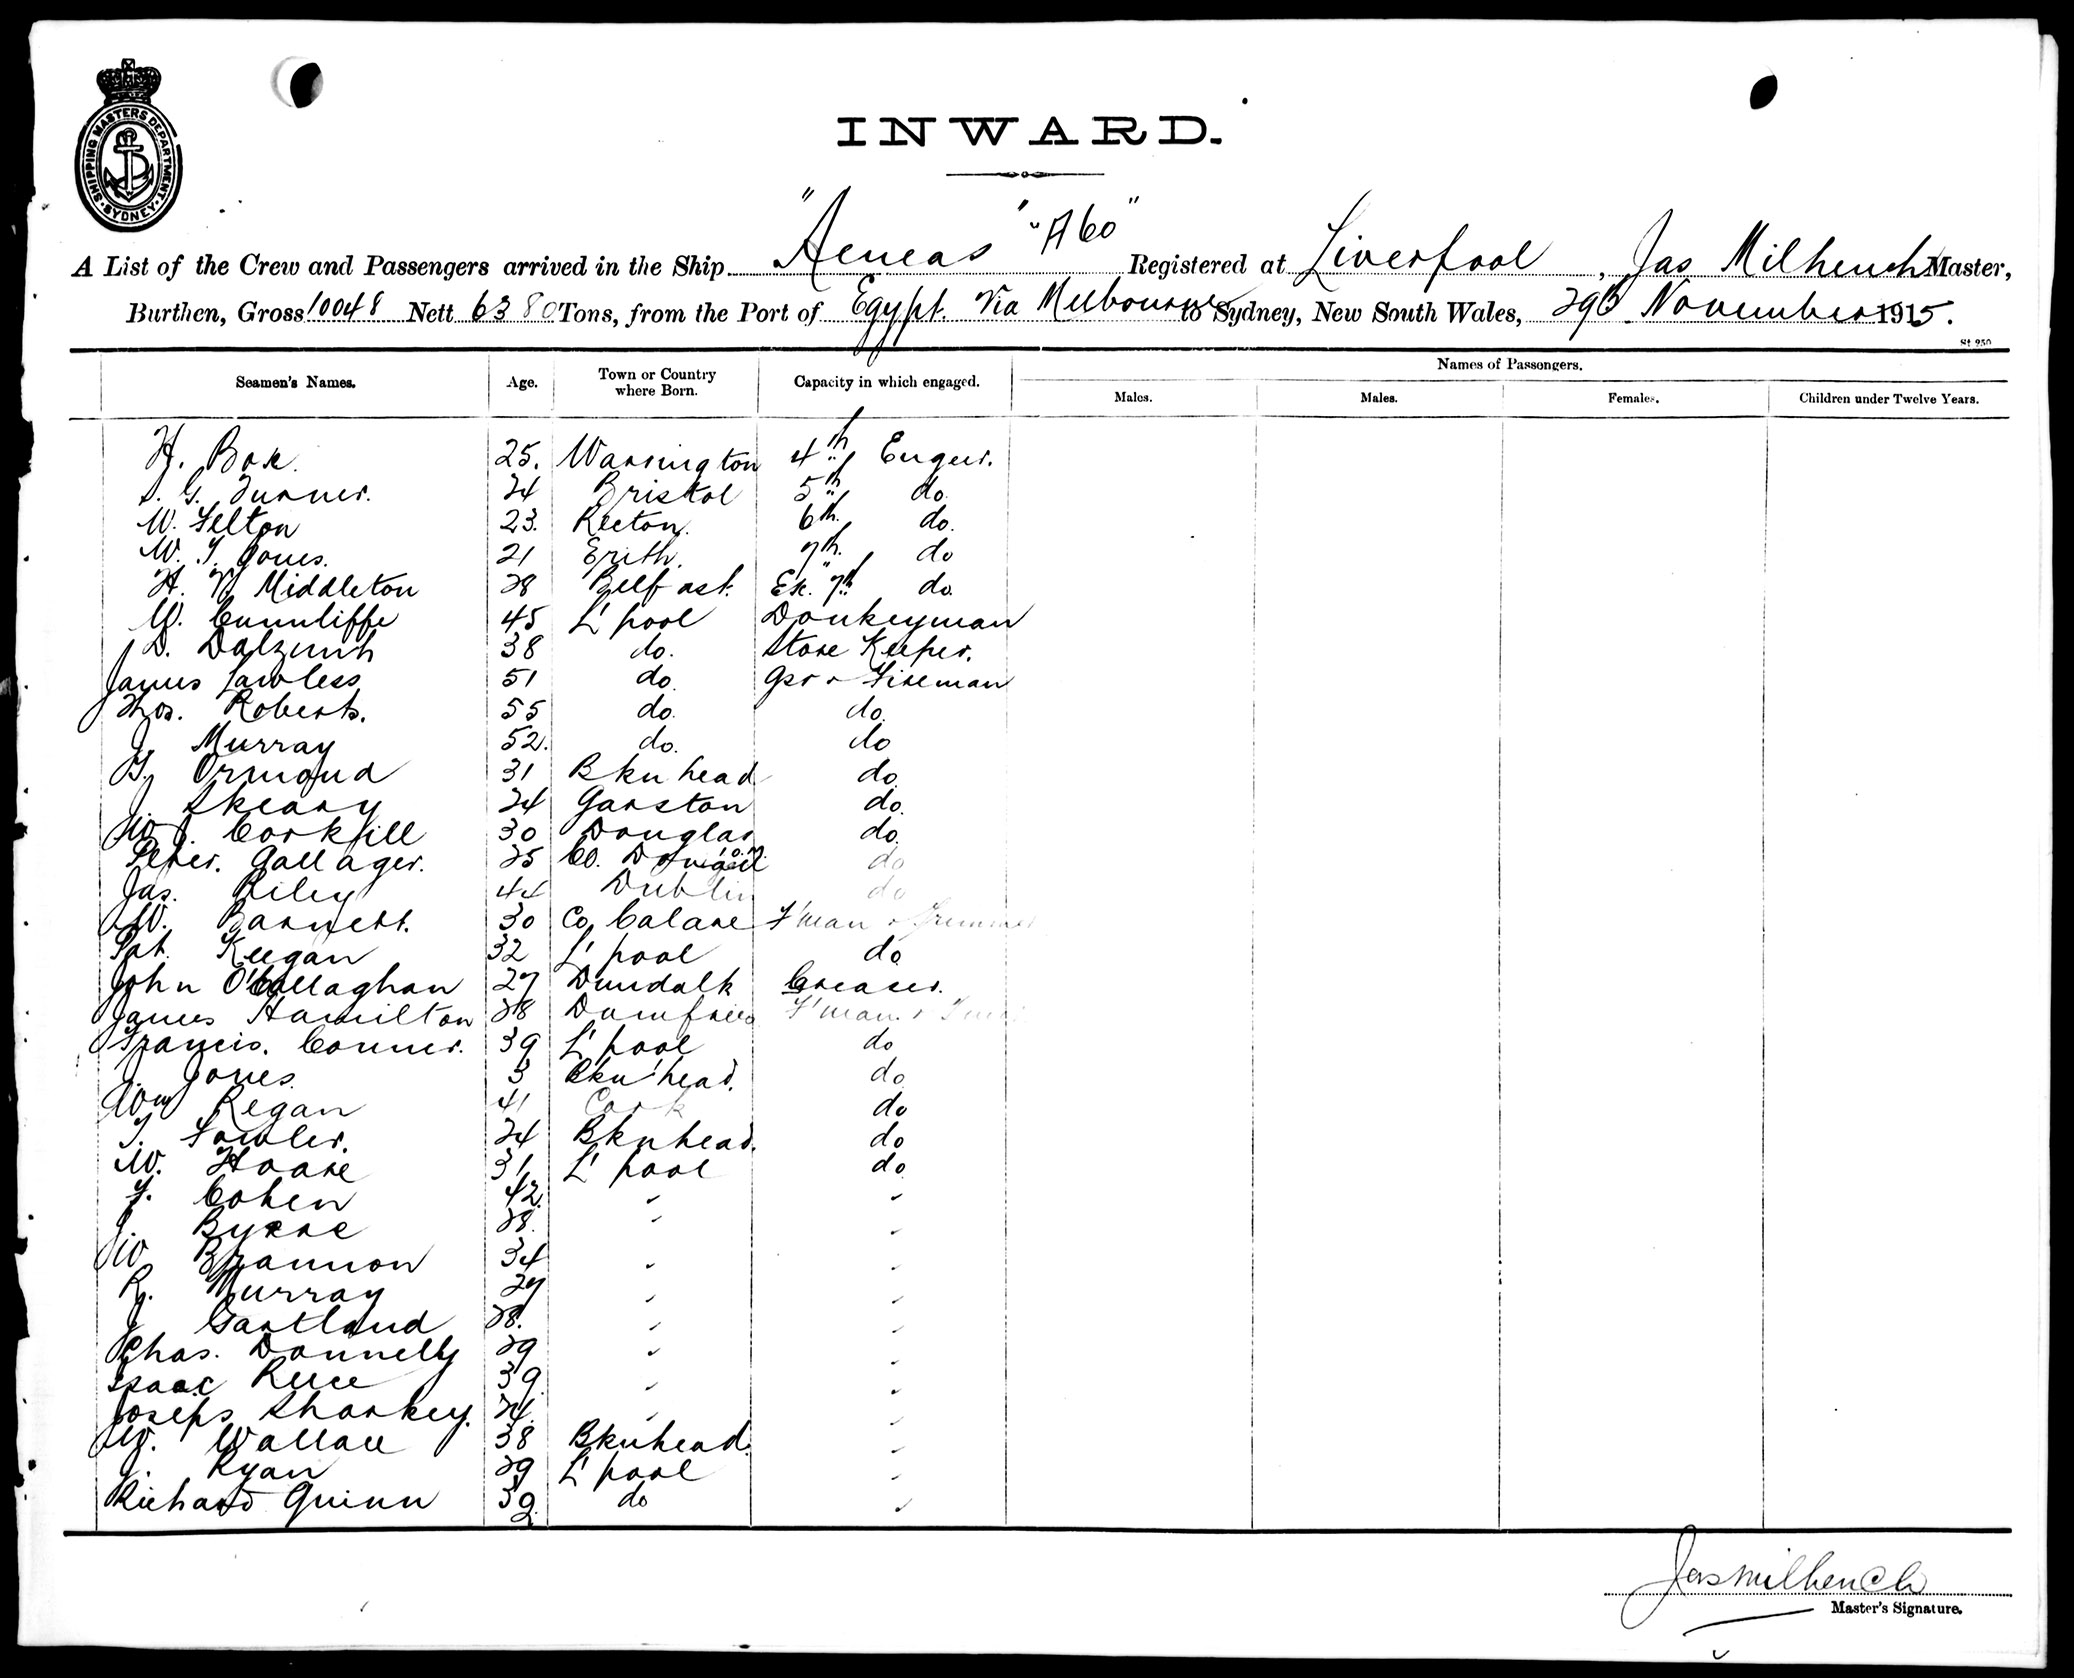 SHIPPING MASTERS DEPARTMENT
SYDNEY
INWARD.
A List of the Crew and Passengers arrived in the Ship "Aeneas" "A60" Registered at Liverpool, Jas Milhench Master,
Burthen, Gross 10048 Nett 6380 Tons, from the Port of Egypt. Via Melbourne to Sydney, New South Wales, 29th November 1915.
St 250
Seamen's Names. Age. Town or Country where Born. Capacity in which engaged. Names of Passengers.
Males. Males. Females. Children under Twelve Years.
H. Box. 25. Warrington 4th Engeer.
G. Turner. 24 Bristol 5th do.
W. Felton 23. 6th do.
W. T. Jones. 21 Erith. 7th. do
H. Middleton 28 Belfast. Ex. 7th do.
W. Cunnliffe 45 L'pool Donkeyman
D. 38 do. Store Keeper.
James Lawless 51 do. Gsr & Fireman
Thos. Roberts. 55 do. do.
J. Murray 52. do. do
Ormond 31 Bknhead do.
J. Skeary 24 Garston do.
W. J. Corkill 30 Douglas I.O.M. do.
Peter. Gallager. 25 Co. Donegal do
Jas. Riley 44 Dublin do
W. Barnett. 30 Co Calare F'man & Trimmer
Pat. Keegan 32 L'pool do
John O'Callaghan 27 Dundalk Greaser.
James Hamilton 28 Dumfries F'man. &
Francis. Conner. 39 L'pool do
J. Jones. 3 Bkn'head. do
Wm Regan 41 Cork do
T. Fowler. 24 Bknhead. do
W. Hoare 31 L'pool do.
Cohen 42. " "
J. Byrne 28. " "
W Brannon 34 " "
R. Murray 27 " "
J. Gartland 28. " "
Chas. Donnelly 29 " "
Isaac Ruce 39. " "
Joseph Sharkey. 24. " "
W. Wallace 38 Bknhead. "
J. Ryan 29 L'pool "
Richard Quinn 39 do "
Jas Milhench
Master's Signature.